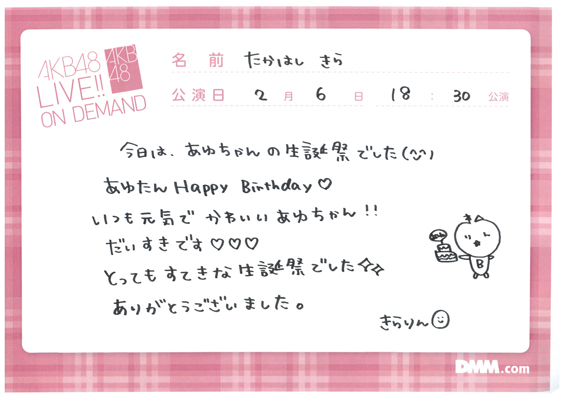 AKB48
LIVE!!
ON DEMAND
AKB
48
名前 たかはし きら
公演日 2月 6日 18:30 公演
今日は、あゆちゃんの生誕祭でした(^^)
あゆたん Happy Birthday♡
いつも元気で かわいい あゆちゃん!!
だいすきです♡♡♡
とっても すてきな 生誕祭でした✧✧
ありがとうございました。
B
きらりん☺
DMM.com